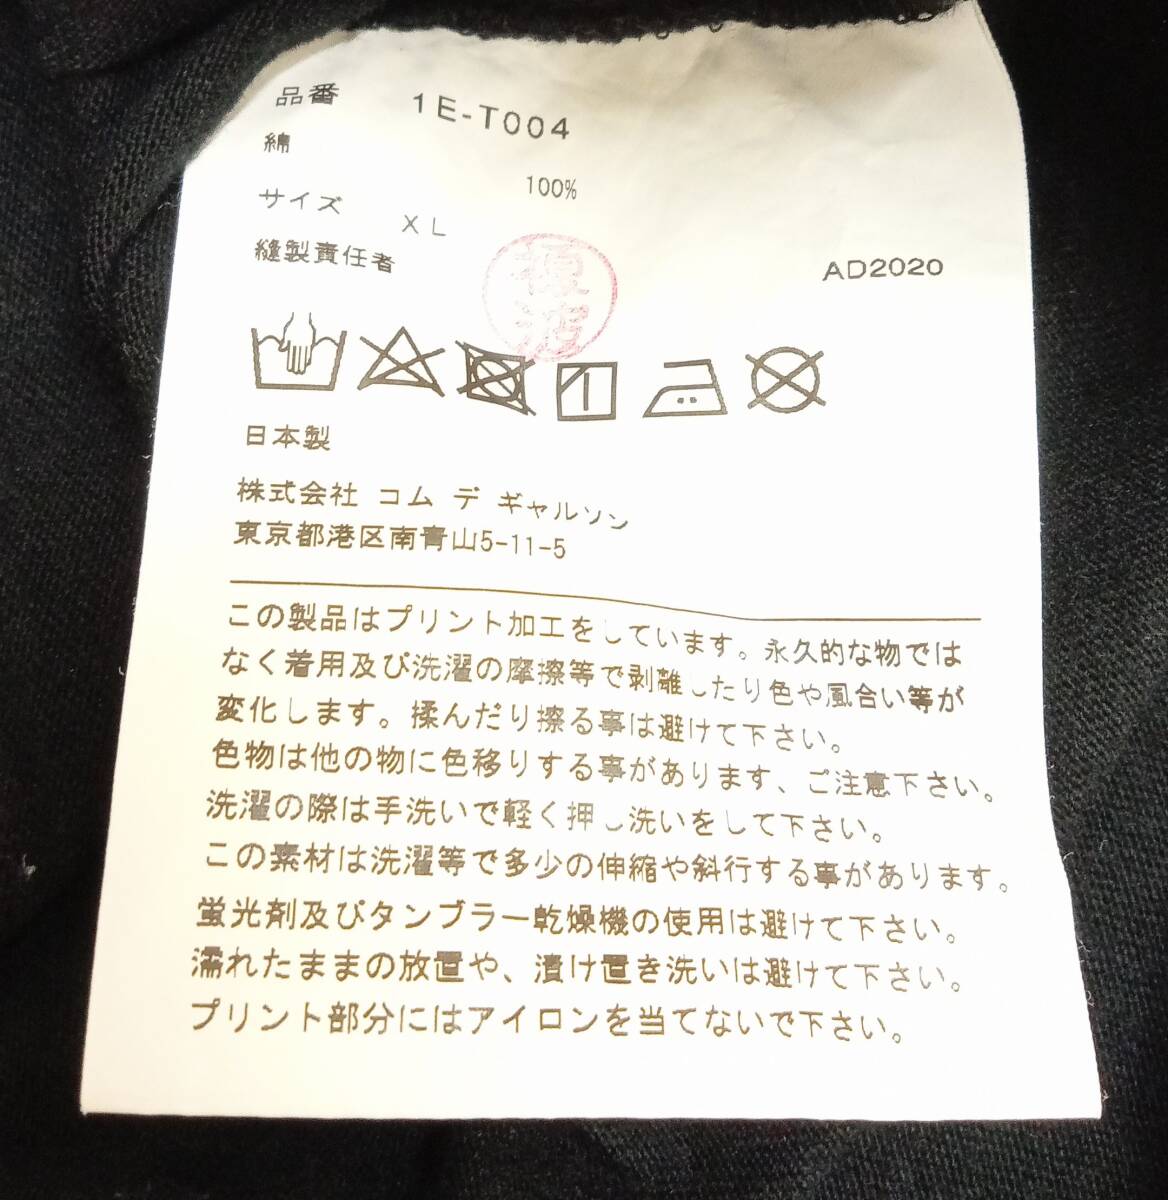 品番 1E-T004
綿
100%
サイズ XL
縫製責任者
AD2020
日本製
株式会社 コム デ ギャルソン
東京都港区南青山5-11-5
この製品はプリント加工をしています。永久的な物では
なく着用及び洗濯の摩擦等で剥離したり色や風合い等が
変化します。揉んだり擦る事は避けて下さい。
色物は他の物に色移りする事があります、ご注意下さい。
洗濯の際は手洗いで軽く押し洗いをして下さい。
この素材は洗濯等で多少の伸縮や斜行する事があります。
蛍光剤及びタンブラー乾燥機の使用は避けて下さい。
濡れたままの放置や、漬け置き洗いは避けて下さい。
プリント部分にはアイロンを当てないで下さい。